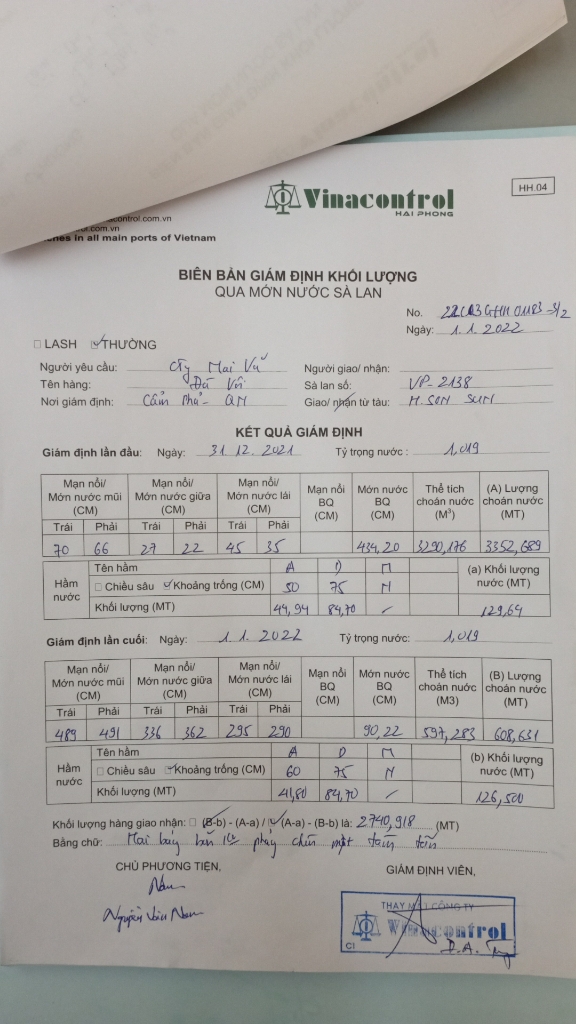 Vinacontrol
HAI PHONG
HH.04
control.com.vn
ol.com.vn
nches in all main ports of Vietnam
BIÊN BẢN GIÁM ĐỊNH KHỐI LƯỢNG
QUA MỚN NƯỚC SÀ LAN
No.
Ngày: 1.1.2022
LASH THƯỜNG
Người yêu cầu: Cty Mai Vũ Người giao/ nhận:
Tên hàng: Đá Vôi Sà lan số: VP-2138
Nơi giám định: Cẩm Phả - QN Giao/ nhận từ tàu:
KẾT QUẢ GIÁM ĐỊNH
Giám định lần đầu: Ngày: 31.12.2021 Tỷ trọng nước : 1,019
Mạn nổi/ Mớn nước mũi (CM) Mạn nổi/ Mớn nước giữa (CM) Mạn nổi/ Mớn nước lái (CM) Mạn nổi BQ (CM) Mớn nước BQ (CM) Thể tích choán nước (M³) (A) Lượng choán nước (MT)
Trái Phải Trái Phải Trái Phải
70 66 27 22 45 35 434,20 3290,176 3352,689
Hầm nước
Tên hầm A D M (a) Khối lượng nước (MT)
Chiều sâu Khoảng trống (CM) 50 75 N
Khối lượng (MT) 44,94 84,70 129,64
Giám định lần cuối: Ngày: 1.1.2022 Tỷ trọng nước: 1,019
Mạn nổi/ Mớn nước mũi (CM) Mạn nổi/ Mớn nước giữa (CM) Mạn nổi/ Mớn nước lái (CM) Mạn nổi BQ (CM) Mớn nước BQ (CM) Thể tích choán nước (M3) (B) Lượng choán nước (MT)
Trái Phải Trái Phải Trái Phải
489 491 336 362 295 290 90,22 597,283 608,631
Hầm nước
Tên hầm A D M (b) Khối lượng nước (MT)
Chiều sâu Khoảng trống (CM) 60 75 N
Khối lượng (MT) 41,80 84,70 126,500
Khối lượng hàng giao nhận: (B-b) - (A-a) / (A-a) - (B-b) là: 2740,918 (MT)
Bằng chữ: Hai bảy bốn phảy chín một tám tấn
CHỦ PHƯƠNG TIỆN, GIÁM ĐỊNH VIÊN,
Nam
Nguyễn Văn Nam
THAY MẶT CÔNG TY
Vinacontrol
CI